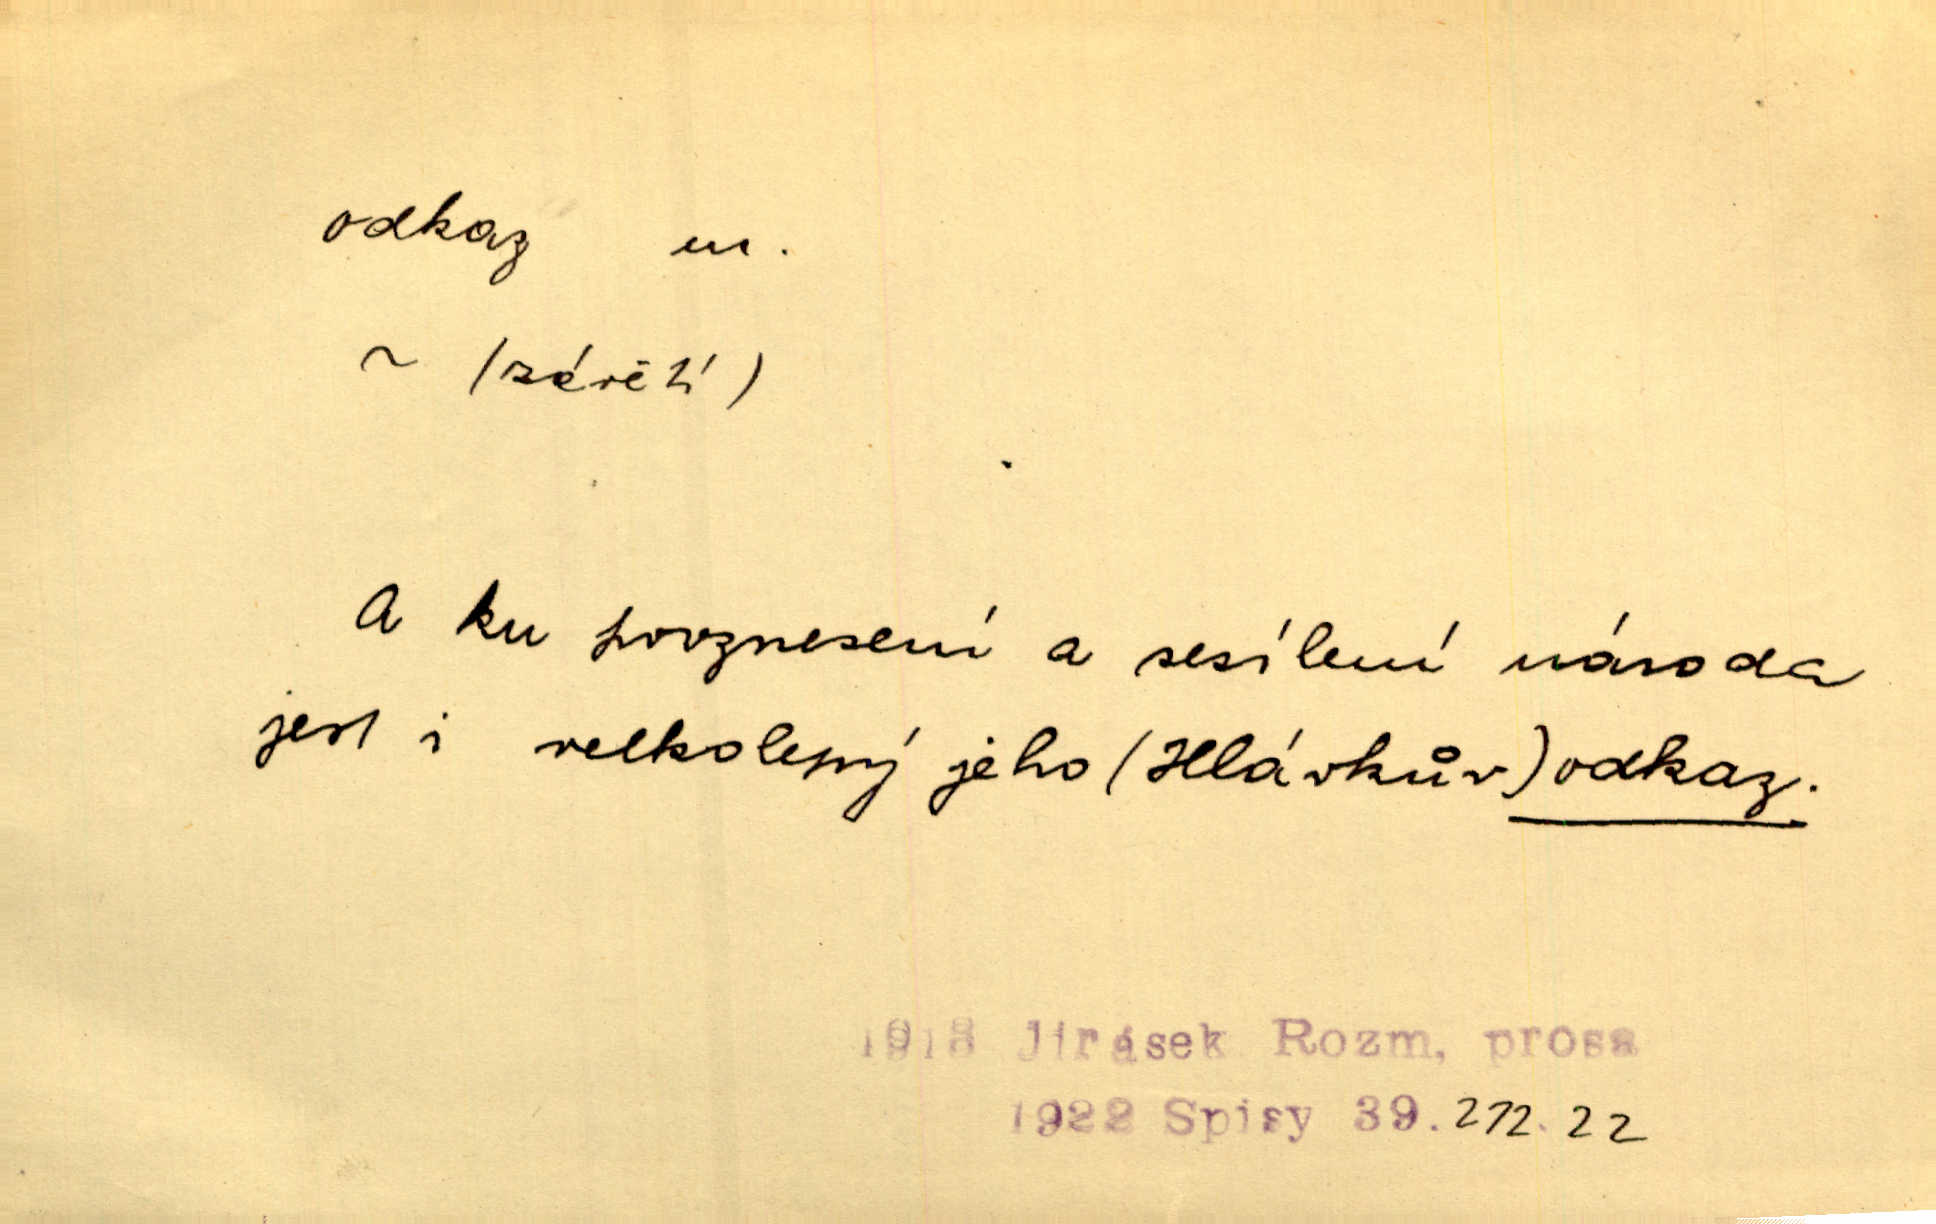 odkaz m.
~ (závěť)
A ku povznesení a sesílení národa
jest i velkolepý jeho (Hlávkův) odkaz.
1918 Jirásek Rozm, prosa
1922 Spisy 39. 272. 22